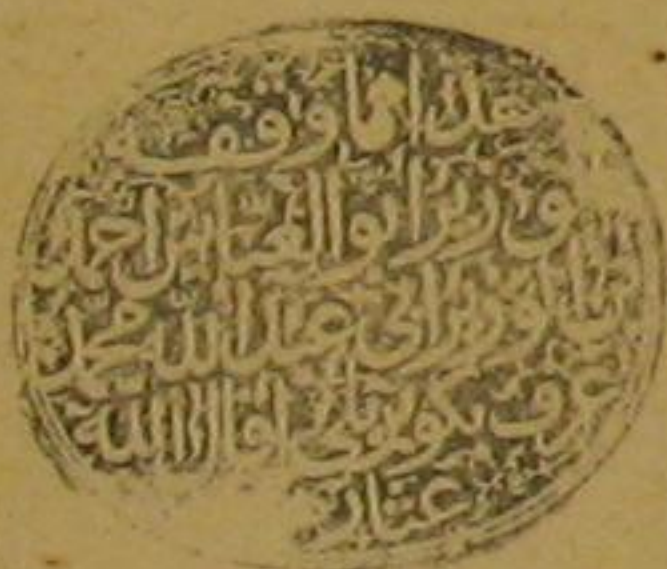 هذا ما وقفه
وزير ابو العباس احمد
بن الوزير ابي عبد الله محمد
عرف بكوبريلي اقال الله
عثار